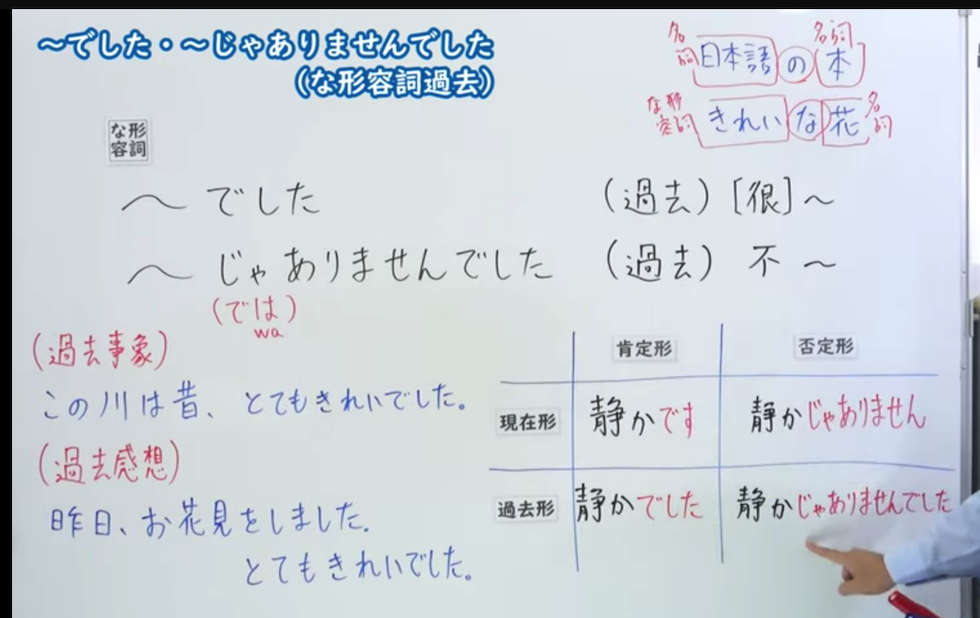 ～でした・～じゃありませんでした
（な形容詞過去）
名詞 日本語 の 本 名詞
な形容詞 きれい な 花 名詞
な形容詞
～ でした （過去）［很］～
～ じゃありませんでした （過去） 不 ～
（では）
wa
（過去事象）
この川は昔、とてもきれいでした。
（過去感想）
昨日、お花見をしました。
とてもきれいでした。
肯定形 否定形
現在形 静かです 静かじゃありません
過去形 静かでした 静かじゃありませんでした